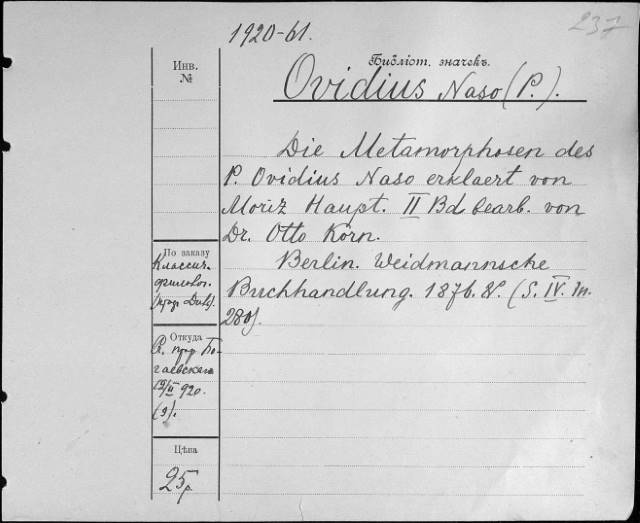 1920-61.
237
Библіот. значекъ.
Ovidius Naso (P.).
Инв.
№
Die Metamorphosen des
P. Ovidius Naso erklaert von
Moriz Haupt. II Bd bearb. von
Dr. Otto Korn.
Berlin. Weidmannsche
Buchhandlung. 1876. 8º. (S. IV. In.
280).
По заказу
Классич.
филолог.
Откуда
проф. Бо-
гаевскаго
19/II 920.
(9).
Цѣна
25 р